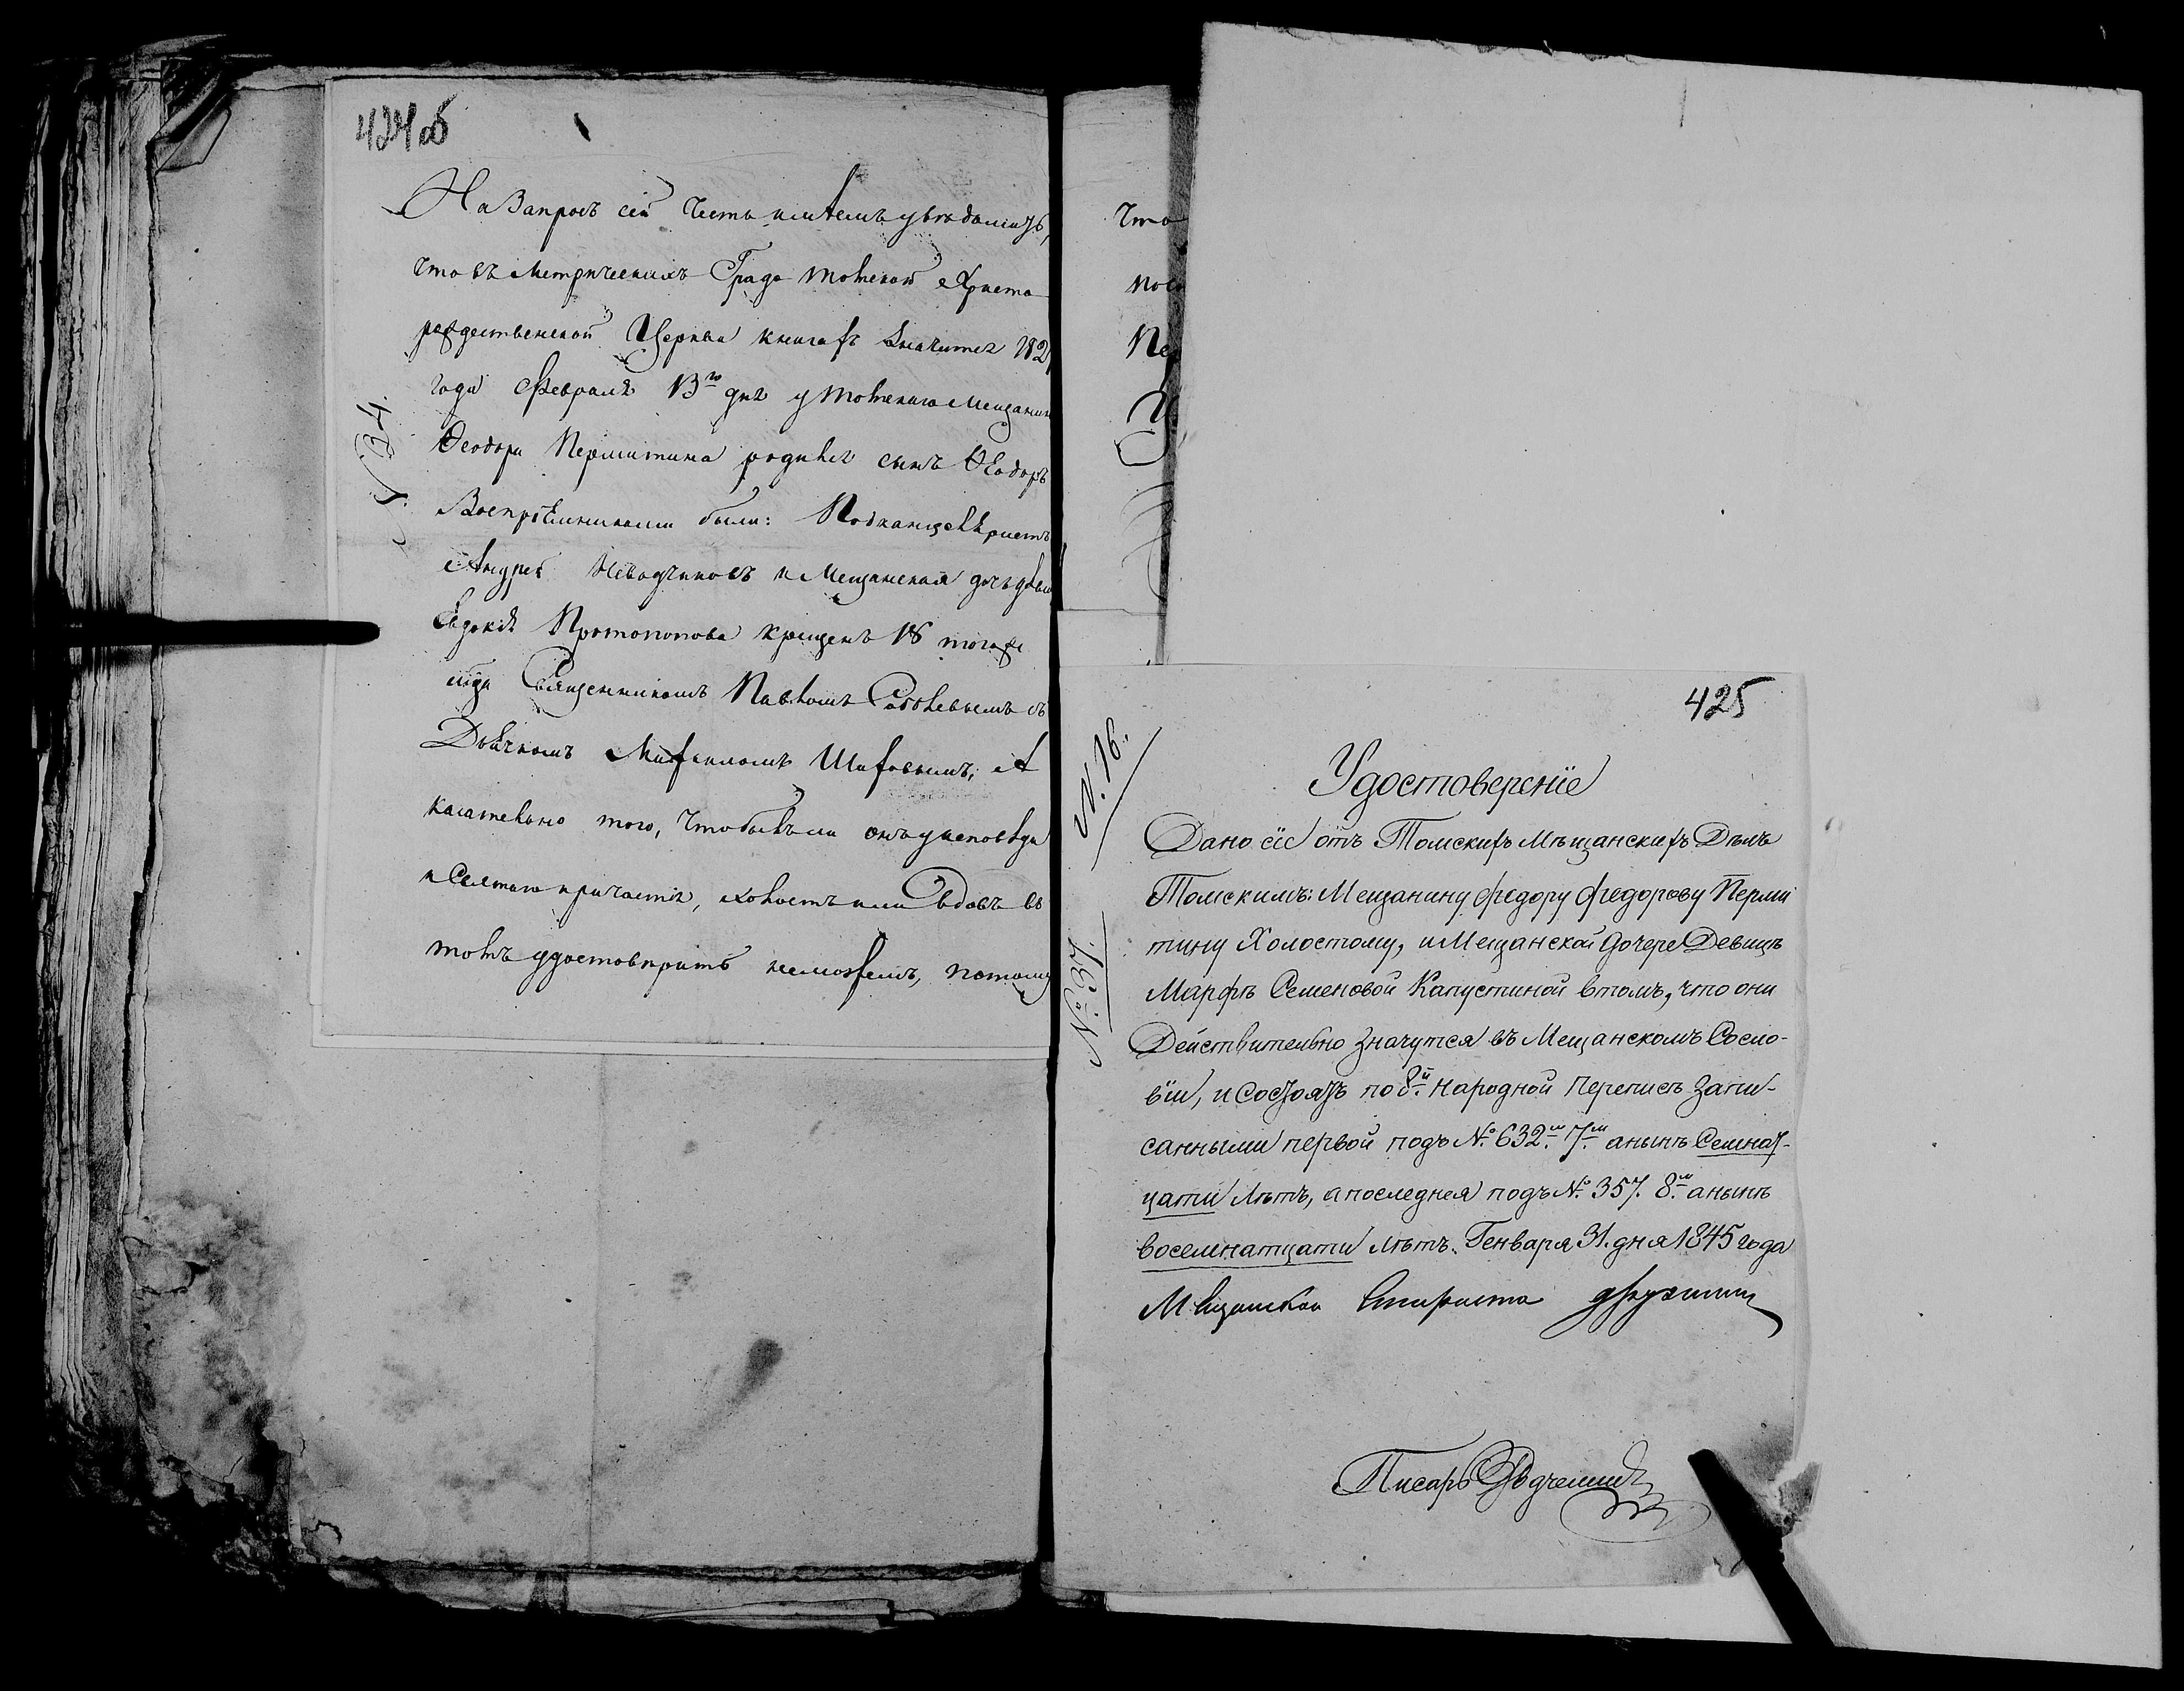 424об
На Запросъ сей Честь имѣемъ увѣдомить,
что въ Метрическихъ Града Томской Христо
рождественской Церкви книгахъ Значится 182
года Февраля 13го дня у Томскаго Мещанин
Ѳеодора Пермитина родился сынъ Ѳеодоръ
Воспріемниками были: Подканцеляристъ
Андрей Неводчиковъ и Мещанская дочь девиц
Евдокія Протопопова крещенъ 18 тогоже
м̃ца Священникомъ Павломъ Соболевымъ съ
Дьячкомъ Михаиломъ Шиховымъ; А
касательно того, Чтобылъли онъ уисповѣди
и Святаго причастія, холостъ или Вдовъ въ
томъ удостовѣрить неможемъ, потому
Что
Пер
№ 16.
№ 37.
425
Удостоверенїе
Дано сїе отъ Томскихъ Мѣщанскихъ Дѣлъ
Томскимъ: Мещанину Федору Федорову Перми
тину Холостому, и Мещанской дочере Девицѣ
Марфѣ Семеновой Капустиной втомъ, что они
Действительно значутся въ Мещанскомъ Сосло-
вїи, и состоятъ по 8й. Народной Переписѣ Запи-
санными первой подъ № 632м. 7м. анынѣ Семнат-
цати Лѣтъ, апоследнея подъ № 357. 8м. анынѣ
восемнатцати лѣтъ. Генваря 31. дня 1845 года
Мещанской Староста
Писарь